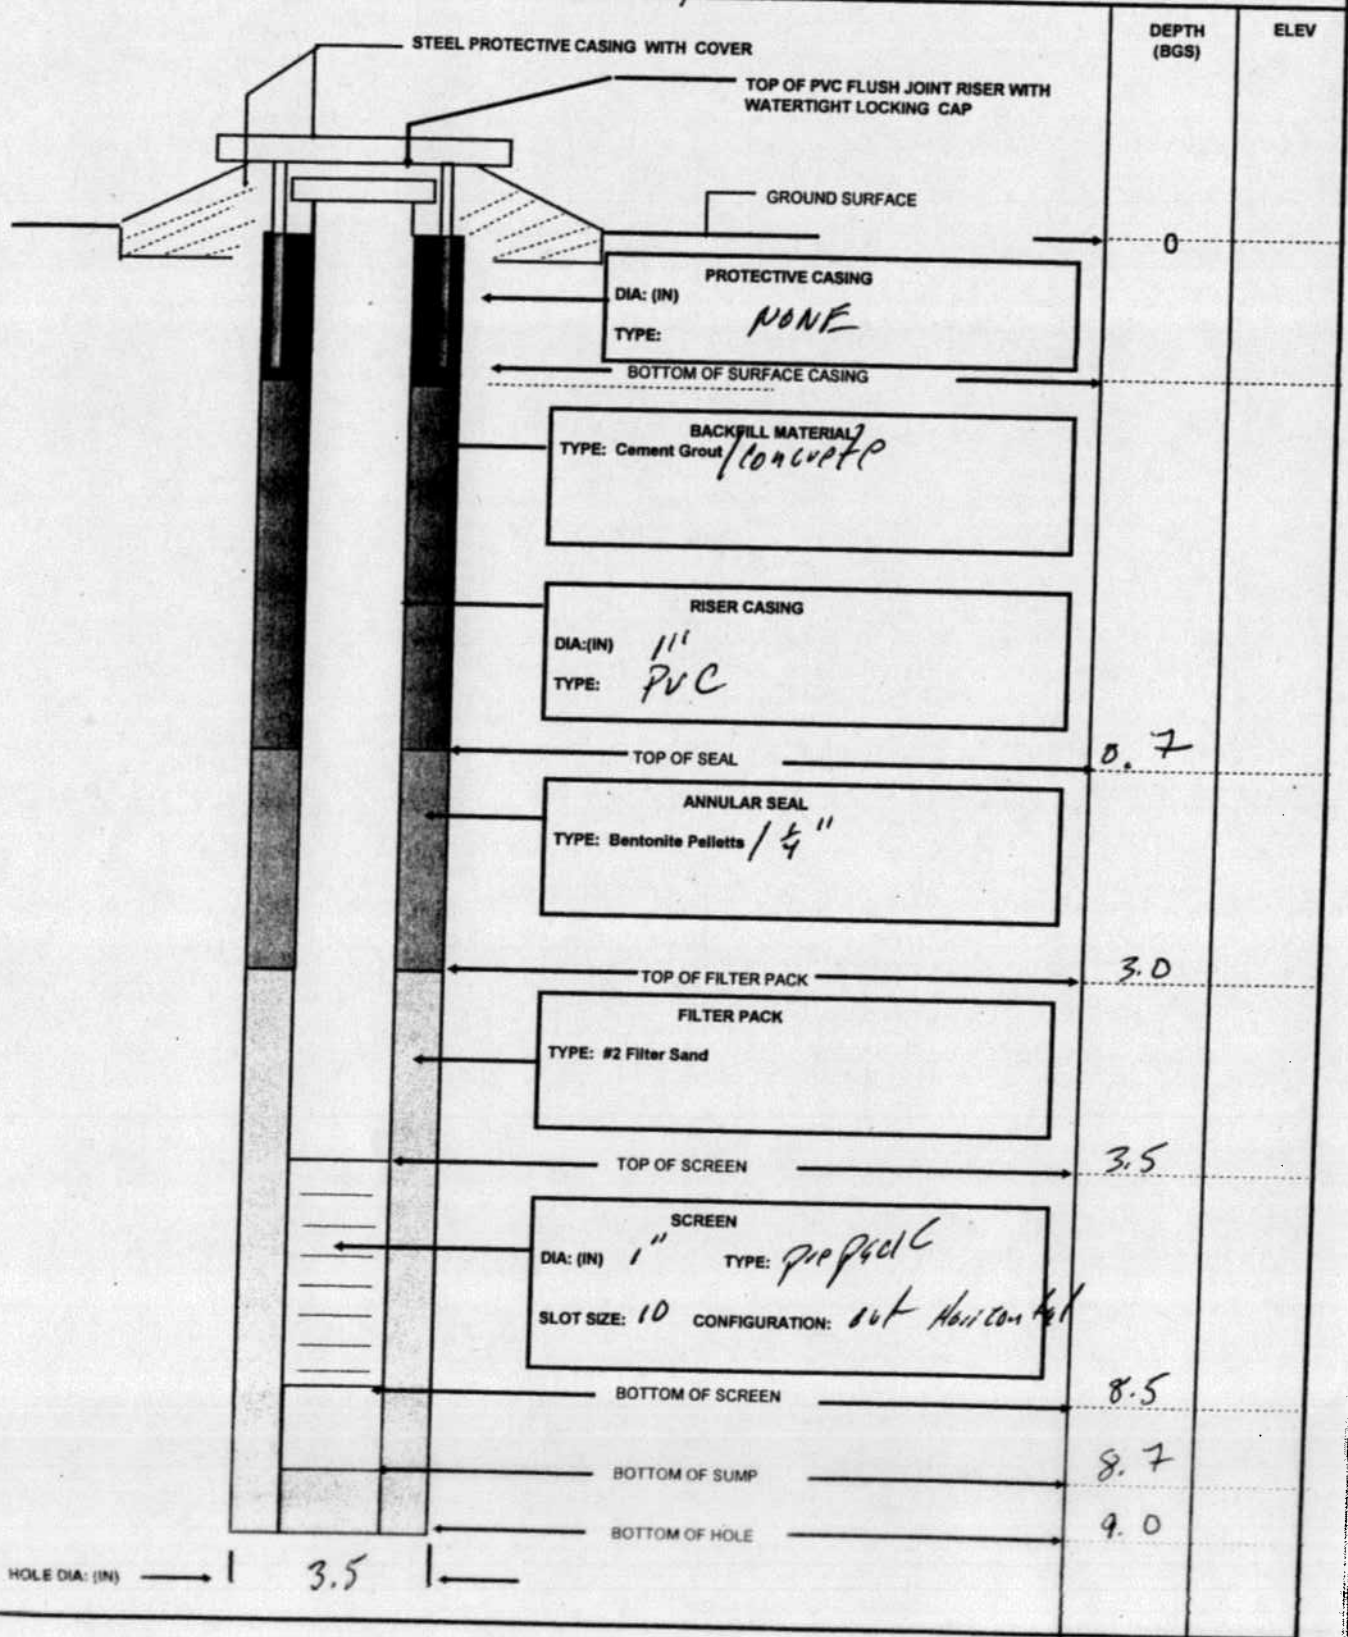 DEPTH (BGS)
ELEV
STEEL PROTECTIVE CASING WITH COVER
TOP OF PVC FLUSH JOINT RISER WITH
WATERTIGHT LOCKING CAP
GROUND SURFACE
0
PROTECTIVE CASING
DIA: (IN)
TYPE: NONE
BOTTOM OF SURFACE CASING
BACKFILL MATERIAL
TYPE: Cement Grout / Concrete
RISER CASING
DIA:(IN) 1"
TYPE: PVC
TOP OF SEAL 0.7
ANNULAR SEAL
TYPE: Bentonite Pelletts / 1/4"
TOP OF FILTER PACK 3.0
FILTER PACK
TYPE: #2 Filter Sand
TOP OF SCREEN 3.5
SCREEN
DIA: (IN) 1" TYPE: prepack
SLOT SIZE: 10 CONFIGURATION: Horizontal
BOTTOM OF SCREEN 8.5
BOTTOM OF SUMP 8.7
BOTTOM OF HOLE 9.0
HOLE DIA: (IN) 3.5